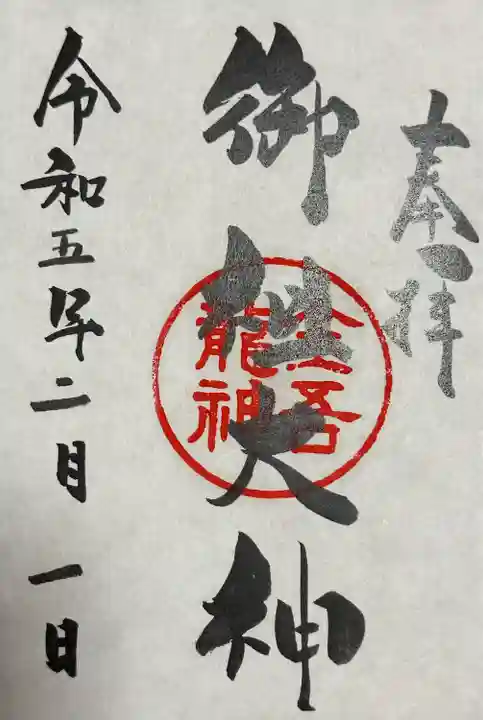 奉拝
御柱大神
金吾
龍神
令和五年二月一日